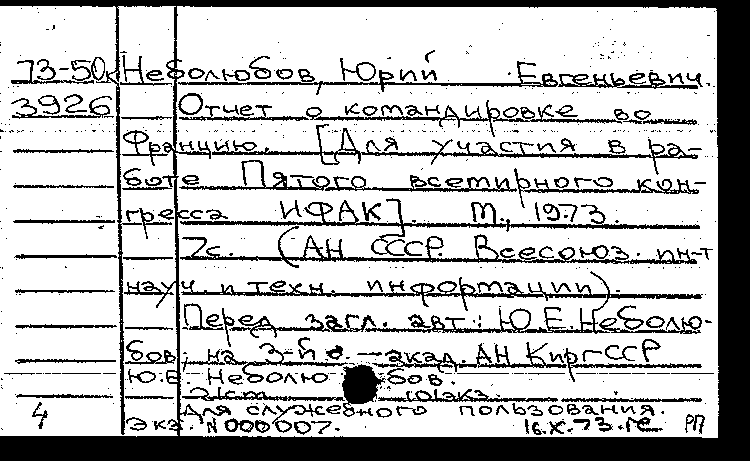 73-50к Неболюбов, Юрий Евгеньевич.
3926 Отчет о командировке во
Францию. [Для участия в ра-
боте Пятого всемирного кон-
гресса ИФАК]. М., 1973.
7с. (АН СССР. Всесоюз. ин-т
науч. и техн. информации).
Перед загл. авт.: Ю.Е.Неболю-
бов; на 3-й с. - акад. АН КиргССР
Ю.Е. Неболюбов.
21см 101экз.
Для служебного пользования.
4 Экз. N 000007. 16.X.73.ге РП